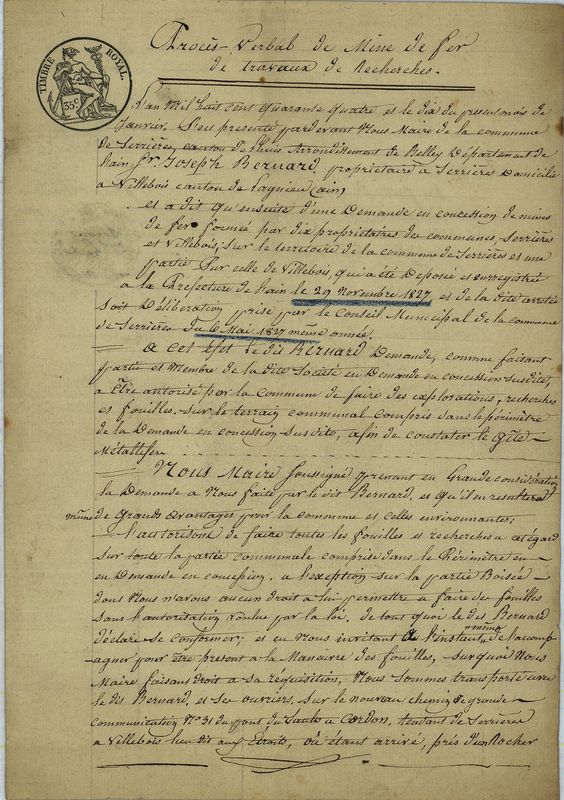 TIMBRE ROYAL
35 c
Procès-Verbal de Mine de fer
de travaux de Recherches.
L'an Mil huit cent quarante quatre et le dix du present mois de
Janvier, S'est presenté pardevant Nous Maire de la commune
de Serrières, canton de Lhuis Arrondissement de Belley Département de
l'ain, Sr. Joseph Bernard, propriétaire à Serrières Domicilié
a Villebois canton de Lagnieu (ain)
et a dit qu'ensuite d'une Demande en concession de mines
de fer formée par dix propriétaires des communes, Serrières
et Villebois, sur le territoire de la commune de Serrières et une
partie Sur celle de Villebois, qui a été Deposée et enregistrée
a la Prefecture de l'ain le 29 Novembre 1827 et de la dite arretée
soit Déliberation prise par le Conseil Municipal de la commune
de Serrières du 6 Mai 1827 même année.
a cet efet le dit Bernard Demande, comme faisant
partie et Membre de la dite Société en Demande en concession susdite,
a Être autorisé par la Commune de faire des explorations, recherches
et fouilles. Sur le terrain communal Compris dans le périmètre
de la Demande en concession susdite, afin de constater le gîte
Métallifer.
Nous Maire soussigné prenant en Grande considération
la Demande a Nous faite par le dit Bernard, et qu'il en resultera
même de Grands avantages pour la commune et celles environnantes;
L'autorisons de faire toutes les fouilles et recherches a cet égard
Sur toute la partie communale comprise dans le Périmètre en
en Demande en concession, a l'exeption sur la partie Boisée
dont Nous n'avons aucun droit a lui permettre a faire des fouilles
Sans l'autorisation voulue par la loi, de tout quoi le dit Bernard
déclare se Conformer; et en Nous invitant de l'accomp
agner pour être present a la Maneuvre des fouilles, surquoi Nous
Maire faisant droit a Sa requisition, Nous Sommes transporté avec
le dit Bernard, et ses ouvriers. Sur le nouveau chemin de grande
Communication No. 31 du pont du Saults a Cordon, tendant de Serrières
a Villebois lieu dit aux Etroits, où étant arrivé, près d'un Rocher